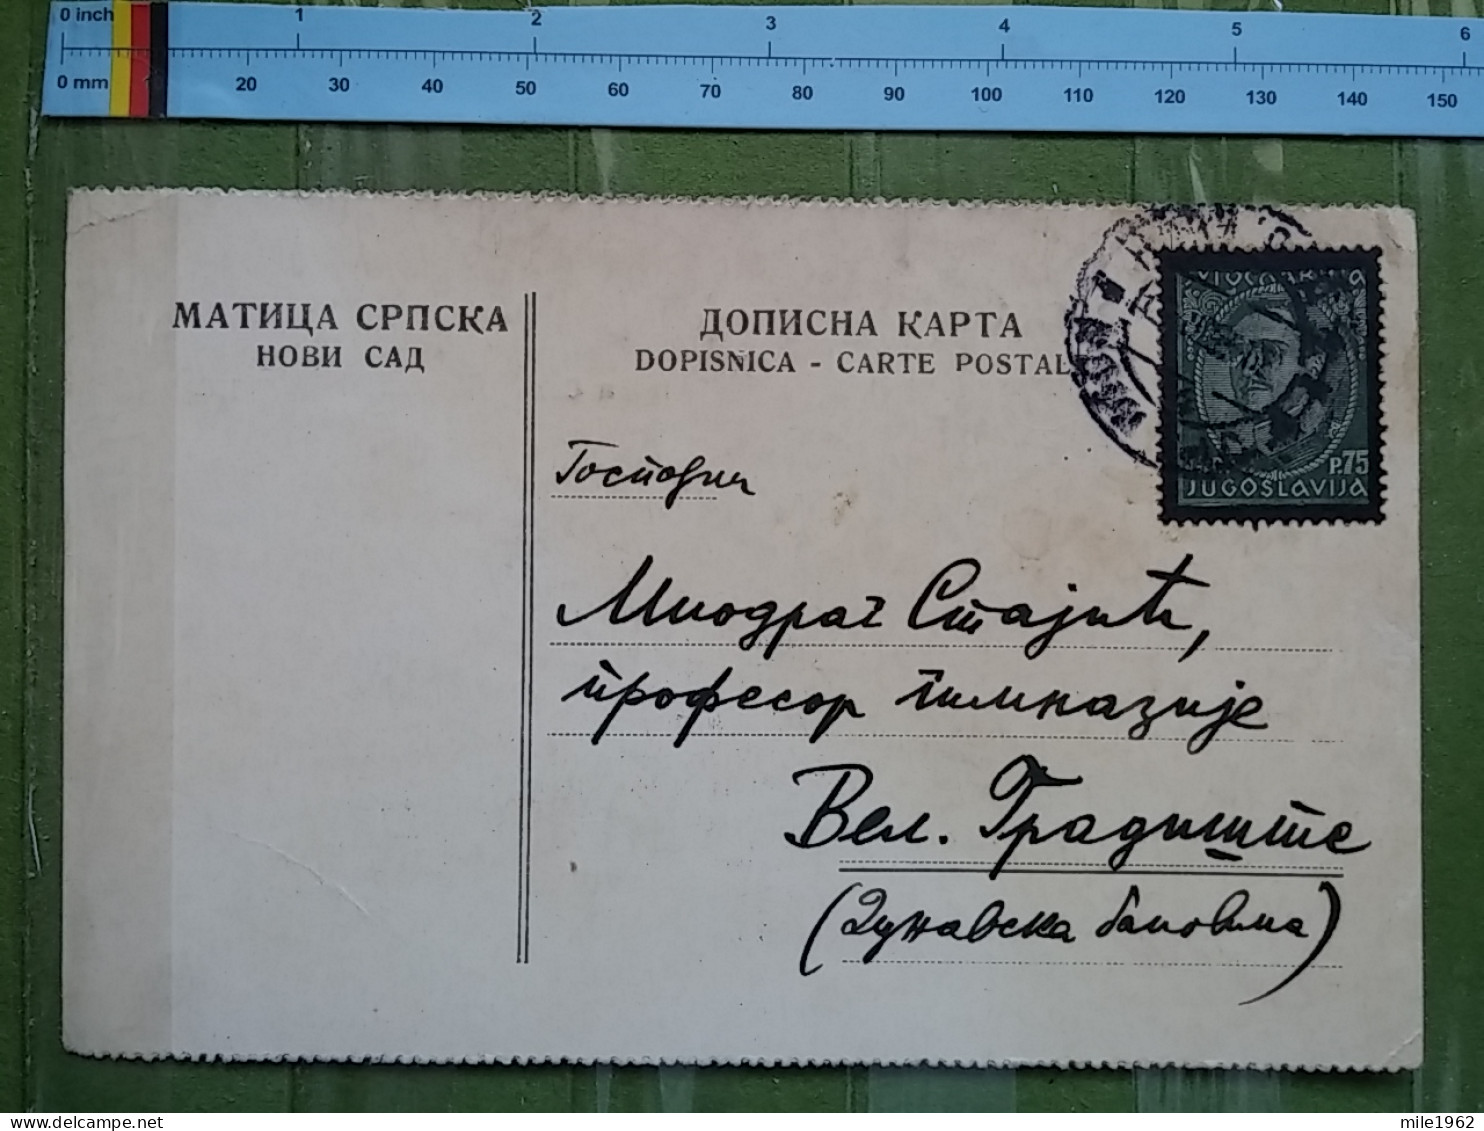 0 inch 1 2 3 4 5 6
0 mm 10 20 30 40 50 60 70 80 90 100 110 120 130 140 150
МАТИЦА СРПСКА
НОВИ САД
ДОПИСНА КАРТА
DOPISNICA - CARTE POSTAL
P.75
JUGOSLAVIJA
Господин
Миодраг Стајић,
професор гимназије
Вел. Градиште
(Дунавска бановина)
mile1962